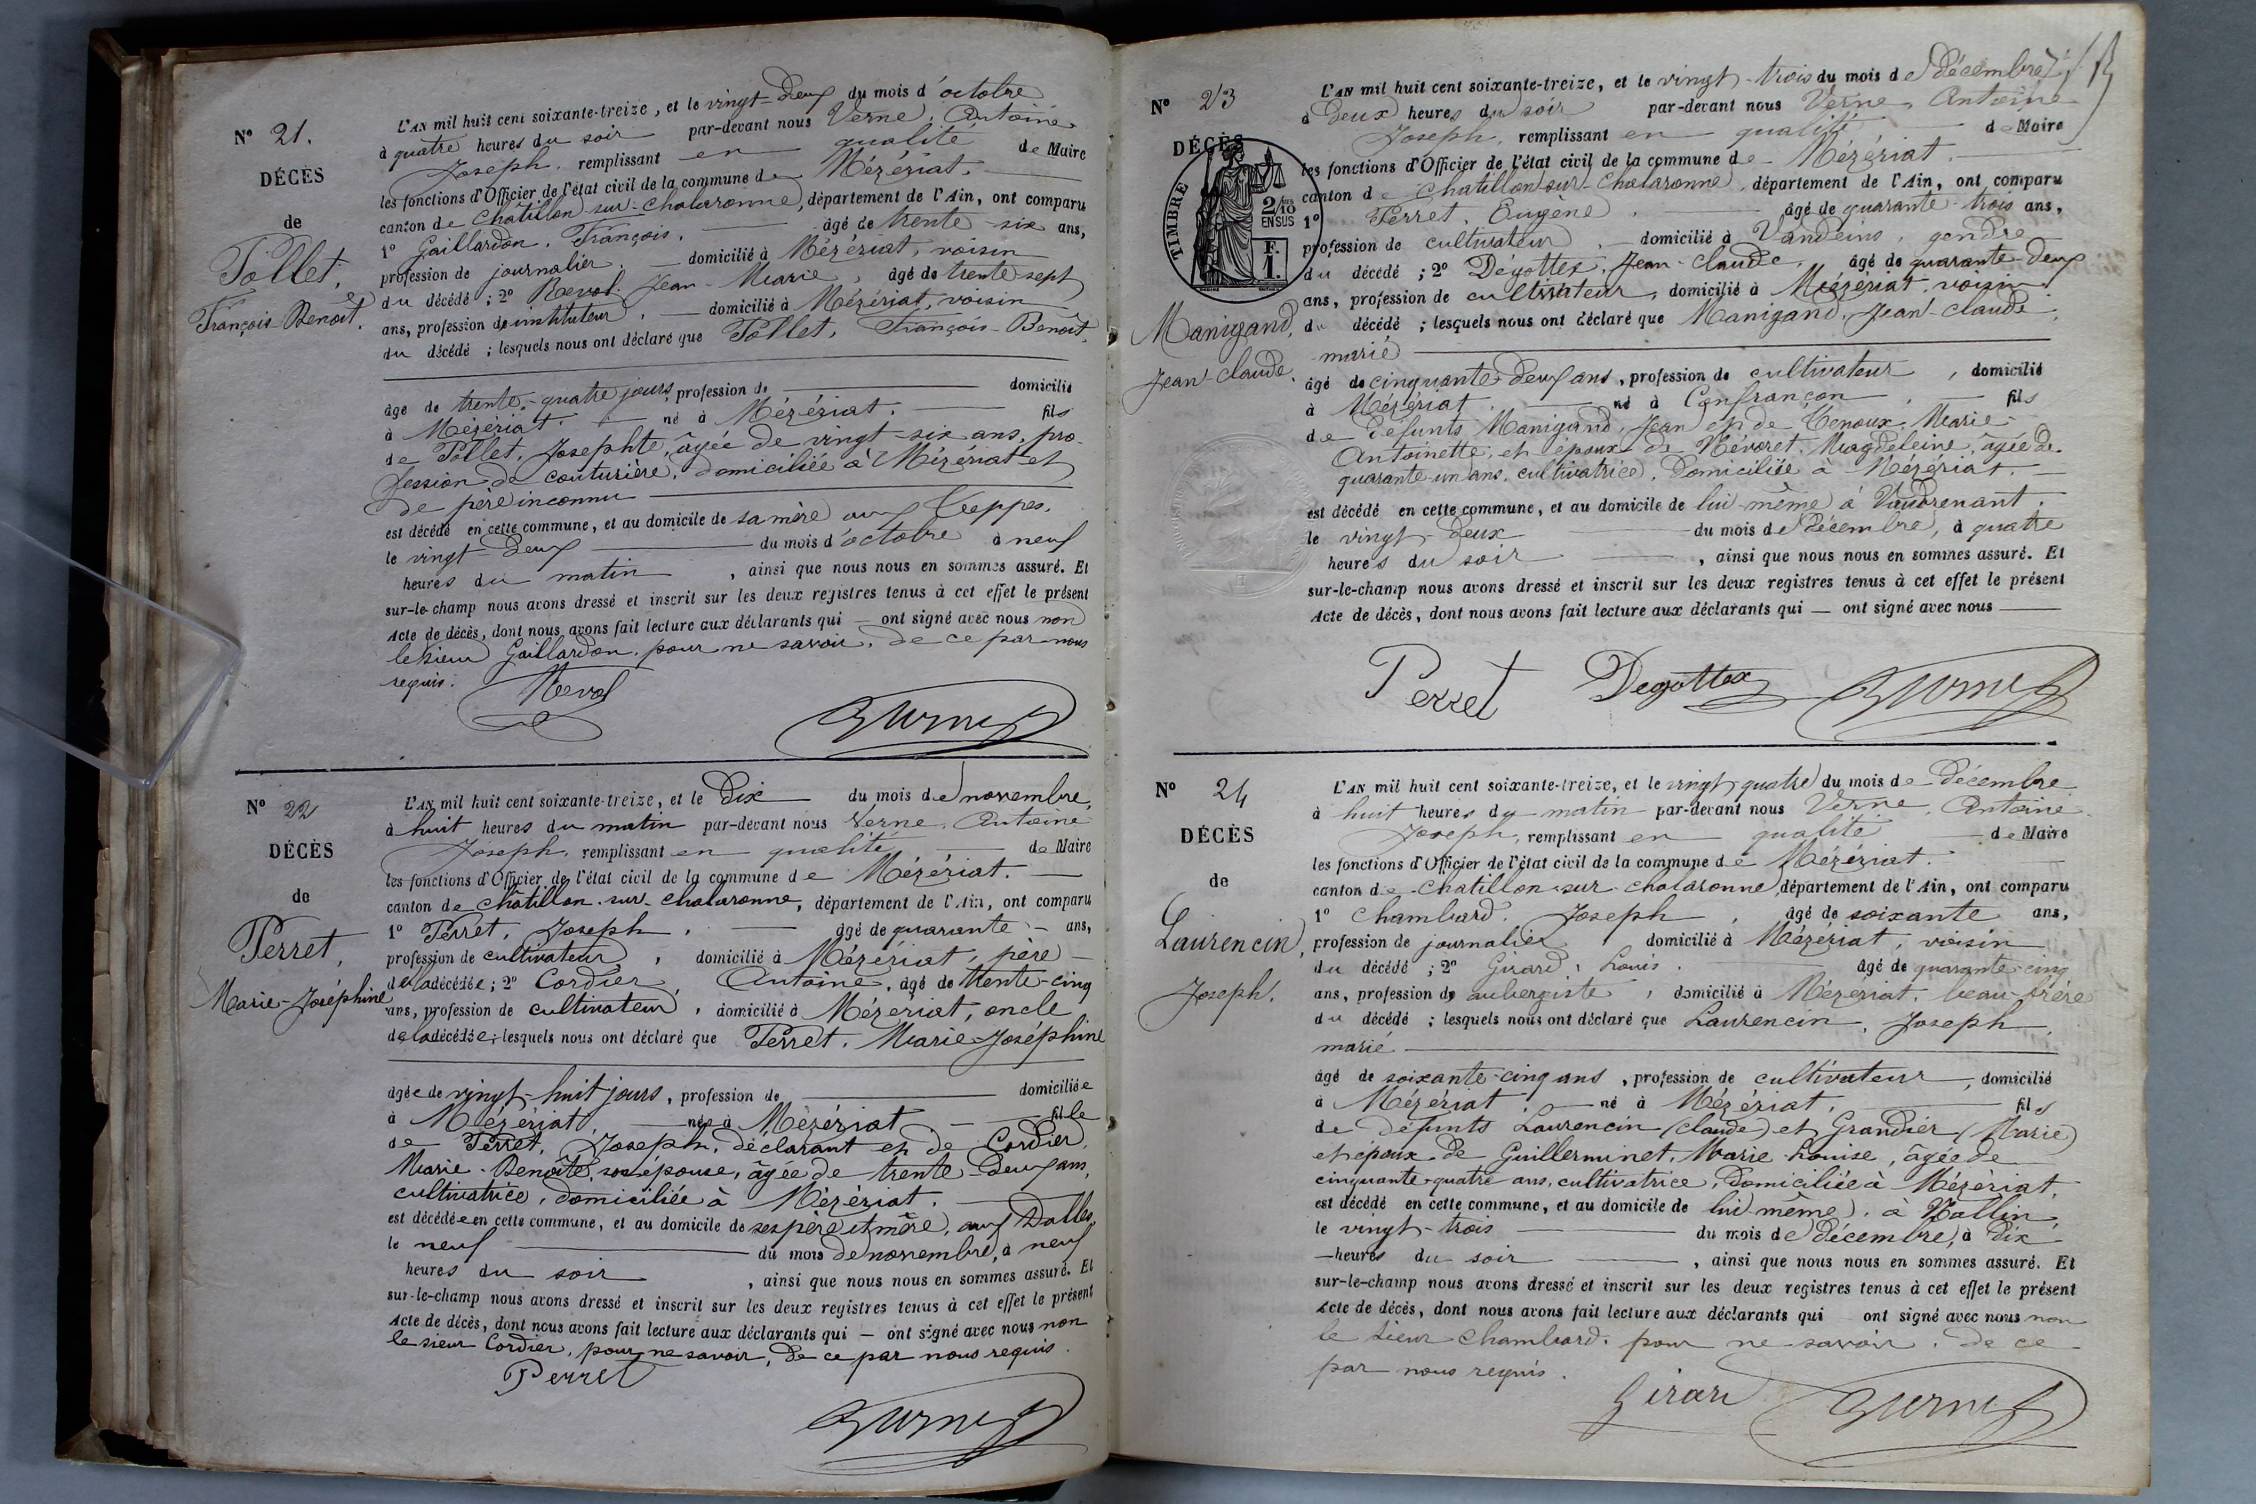 N° 21.
DÉCÈS
de
Pollet,
François-Benoît.
L'AN mil huit cent soixante-treize, et le vingt-deux du mois d'octobre
à quatre heures du soir par-devant nous Verne, Antoine
Joseph, remplissant en qualité de Maire
les fonctions d'Officier de l'état civil de la commune de Mézériat.
canton de Châtillon sur-Chalaronne, département de l'Ain, ont comparu
1° Gaillardon, François, âgé de trente-six ans,
profession de journalier, domicilié à Mézériat, voisin
du décédé ; 2° Revol, Jean-Marie, âgé de trente sept
ans, profession de instituteur, domicilié à Mézériat, voisin
du décédé ; lesquels nous ont déclaré que Pollet, François-Benoît,
âgé de trente-quatre jours, profession de domicilié
à Mézériat, né à Mézériat. fils
de Pollet, Josephte, âgée de vingt-six ans, pro-
fession de couturière, domiciliée à Mézériat et
de père inconnu
est décédé en cette commune, et au domicile de sa mère aux Teppes.
le vingt-deux du mois d'octobre à neuf
heures du matin, ainsi que nous nous en sommes assuré. Et
sur-le-champ nous avons dressé et inscrit sur les deux registres tenus à cet effet le présent
Acte de décès, dont nous avons fait lecture aux déclarants qui — ont signé avec nous non
le sieur Gaillardon, pour ne savoir, de ce par nous
requis.
Revol
N° 22
DÉCÈS
de
Perret,
Marie-Joséphine
L'AN mil huit cent soixante-treize, et le dix du mois de novembre,
à huit heures du matin par-devant nous Verne, Antoine
Joseph, remplissant en qualité de Maire
les fonctions d'Officier de l'état civil de la commune de Mézériat.
canton de Châtillon-sur-Chalaronne, département de l'Ain, ont comparu
1° Perret, Joseph, âgé de quarante ans,
profession de cultivateur, domicilié à Mézériat, père
de la décédée ; 2° Cordier, Antoine, âgé de trente-cinq
ans, profession de cultivateur, domicilié à Mézériat, oncle
de la décédée ; lesquels nous ont déclaré que Perret, Marie-Joséphine
âgée de vingt-huit jours, profession de domiciliée
à Mézériat, née à Mézériat fille
de Perret, Joseph, déclarant et de Cordier,
Marie-Benoîte, son épouse, âgée de trente-deux ans,
cultivatrice, domiciliée à Mézériat.
est décédée en cette commune, et au domicile de ses père et mère, aux Dalles
le neuf du mois de novembre, à neuf
heures du soir, ainsi que nous nous en sommes assuré. Et
sur-le-champ nous avons dressé et inscrit sur les deux registres tenus à cet effet le présent
Acte de décès, dont nous avons fait lecture aux déclarants qui — ont signé avec nous non
le sieur Cordier, pour ne savoir, de ce par nous requis.
Perret
N° 23
DÉCÈS
TIMBRE
2/10
EN SUS
F.
1.
Manigand,
Jean-Claude.
L'AN mil huit cent soixante-treize, et le vingt-trois du mois de décembre
à deux heures du soir par-devant nous Verne, Antoine
Joseph, remplissant en qualité de Maire
les fonctions d'Officier de l'état civil de la commune de Mézériat.
canton de Chatillon sur-Chalaronne, département de l'Ain, ont comparu
1° Perret, Eugène, âgé de quarante-trois ans,
profession de cultivateur, domicilié à Vandeins, gendre
du décédé ; 2° Dégottex, Jean-Claude, âgé de quarante-deux
ans, profession de cultivateur, domicilié à Mézériat, voisin
du décédé ; lesquels nous ont déclaré que Manigand, Jean-Claude,
marié
âgé de cinquante-deux ans, profession de cultivateur, domicilié
à Mézériat, né à Confrançon, fils
de défunts Manigand, Jean et de Tenoux, Marie
Antoinette, et époux de Névoret, Magdeleine, âgée de
quarante-un ans, cultivatrice, domiciliée à Mézériat.
est décédé en cette commune, et au domicile de lui-même à Vaudrenant,
le vingt-deux du mois de décembre, à quatre
heures du soir, ainsi que nous nous en sommes assuré. Et
sur-le-champ nous avons dressé et inscrit sur les deux registres tenus à cet effet le présent
Acte de décès, dont nous avons fait lecture aux déclarants qui — ont signé avec nous
Perret Degottex
N° 24
DÉCÈS
de
Laurencin,
Joseph.
L'AN mil huit cent soixante-treize, et le vingt-quatre du mois de décembre
à huit heures du matin par-devant nous Verne, Antoine
Joseph, remplissant en qualité de Maire
les fonctions d'Officier de l'état civil de la commune de Mézériat.
canton de Chatillon-sur-Chalaronne, département de l'Ain, ont comparu
1° Chambard, Joseph, âgé de soixante ans,
profession de journalier domicilié à Mézériat, voisin
du décédé ; 2° Girard, Louis, âgé de quarante-cinq
ans, profession de aubergiste, domicilié à Mézériat, beau-frère
du décédé ; lesquels nous ont déclaré que Laurencin, Joseph,
marié
âgé de soixante-cinq ans, profession de cultivateur, domicilié
à Mézériat, né à Mézériat, fils
de défunts Laurencin (Claude) et Grandier (Marie)
et époux de Guillerminet, Marie-Louise, âgée de
cinquante-quatre ans, cultivatrice, domiciliée à Mézériat,
est décédé en cette commune, et au domicile de lui-même, à Vallin,
le vingt-trois du mois de décembre, à dix
heures du soir, ainsi que nous nous en sommes assuré. Et
sur-le-champ nous avons dressé et inscrit sur les deux registres tenus à cet effet le présent
Acte de décès, dont nous avons fait lecture aux déclarants qui ont signé avec nous non
le sieur Chambard, pour ne savoir, de ce
par nous requis.
Girard